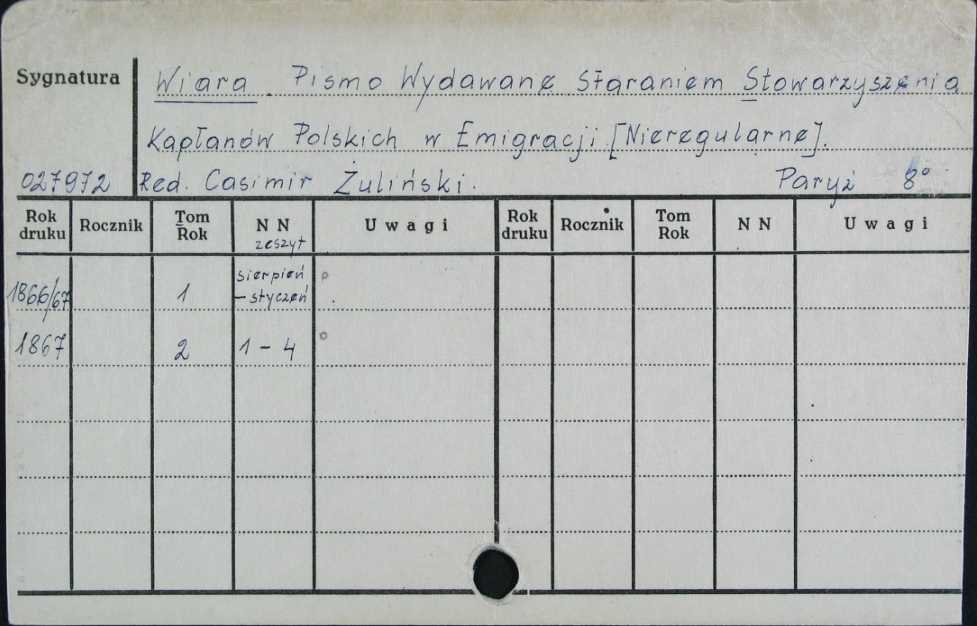 Sygnatura
Wiara. Pismo Wydawane Staraniem Stowarzyszenia
Kapłanów Polskich w Emigracji. [Nieregularne].
027972 Red. Casimir Żuliński. Paryż 8°
Rok druku Rocznik Tom Rok NN zeszyt Uwagi Rok druku Rocznik Tom Rok NN Uwagi
1866/67 1 sierpień - styczeń
1867 2 1 - 4